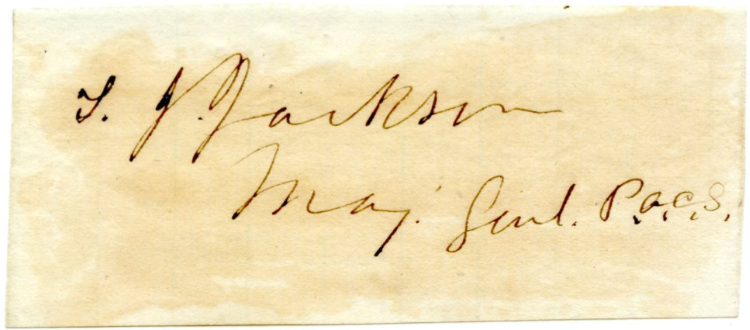 T. J. Jackson
Maj. Genl. P.A.C.S.